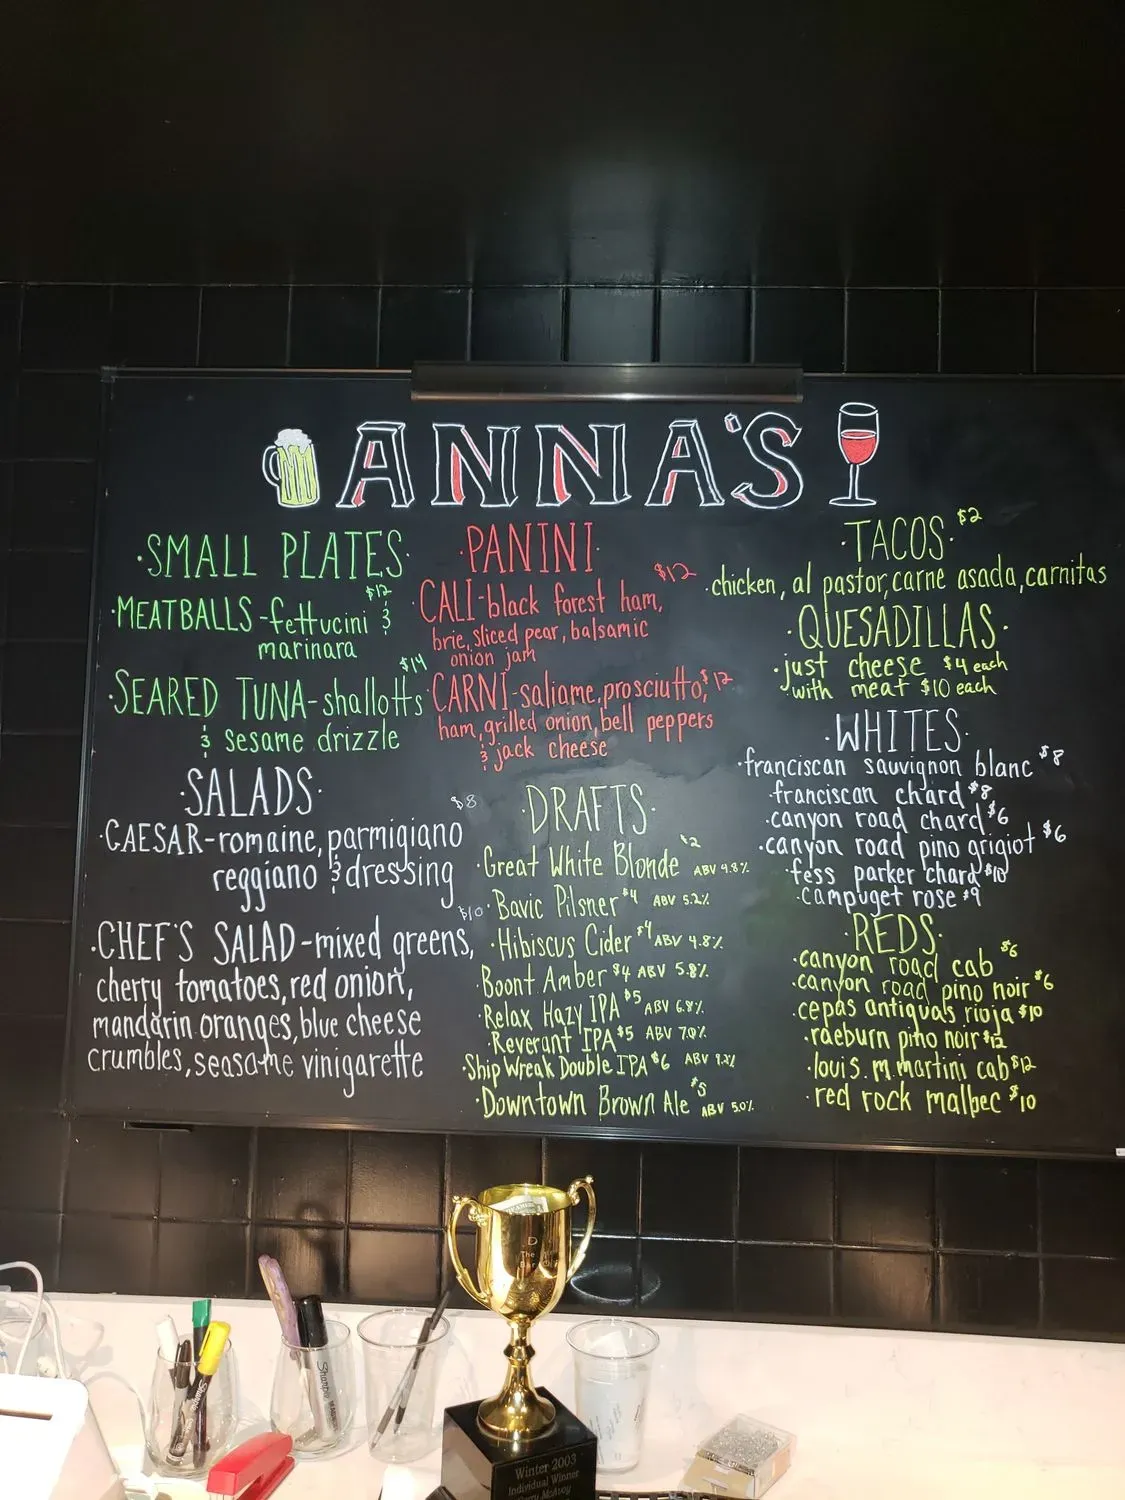 ANNA'S
·SMALL PLATES·
·MEATBALLS-fettucini & $12
marinara
·SEARED TUNA-shallotts $14
& sesame drizzle
·SALADS·
·CAESAR-romaine, parmigiano $8
reggiano & dressing
·CHEF'S SALAD-mixed greens, $10
cherry tomatoes, red onion,
mandarin oranges, blue cheese
crumbles, seasame vinigarette
·PANINI·
·CALI-black forest ham, $12
brie, sliced pear, balsamic
onion jam
·CARNI-saliame, prosciutto, $12
ham, grilled onion, bell peppers
& jack cheese
·DRAFTS·
·Great White Blonde $2 ABV 4.8%
·Bavic Pilsner $4 ABV 5.2%
·Hibiscus Cider $4 ABV 4.8%
·Boont Amber $4 ABV 5.8%
·Relax Hazy IPA $5 ABV 6.8%
·Reverant IPA $5 ABV 7.0%
·Ship Wreak Double IPA $6 ABV
·Downtown Brown Ale $5 ABV 5.0%
·TACOS· $2
·chicken, al pastor, carne asada, carnitas
·QUESADILLAS·
·just cheese $4 each
with meat $10 each
·WHITES·
·franciscan sauvignon blanc $8
·franciscan chard $8
·canyon road chard $6
·canyon road pino grigiot $6
·fess parker chard $10
·campuget rose $9
·REDS·
·canyon road cab $6
·canyon road pino noir $6
·cepas antiguas rioja $10
·raeburn pino noir $12
·louis. m. martini cab $12
·red rock malbec $10
D
The
Sharpie
Sharpie
Winter 2003
Individual Winner
McAvoy